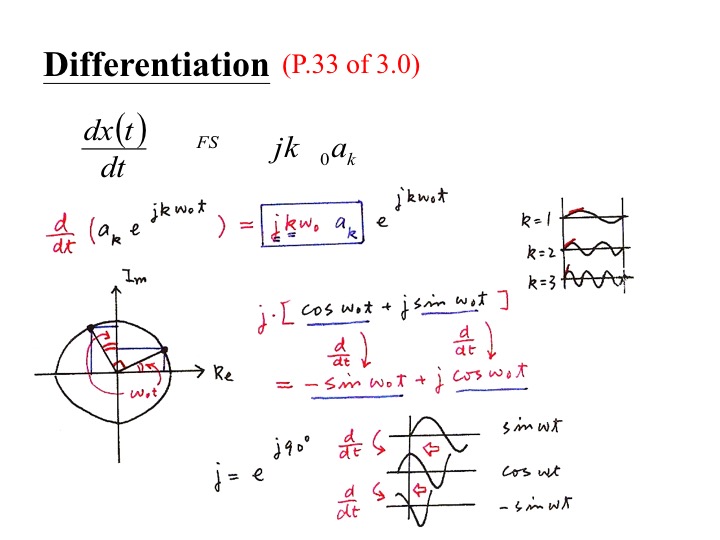 Differentiation (P.33 of 3.0)
dx(t)/dt FS jk ₀aₖ
d/dt (aₖ e^{jkω₀t}) = jkω₀ aₖ e^{jkω₀t}
k=1
k=2
k=3
Im
Re
ω₀t
j·[cos ω₀t + j sin ω₀t]
d/dt d/dt
= -sin ω₀t + j cos ω₀t
j = e^{j90°}
d/dt
d/dt
sin ωt
cos ωt
-sin ωt